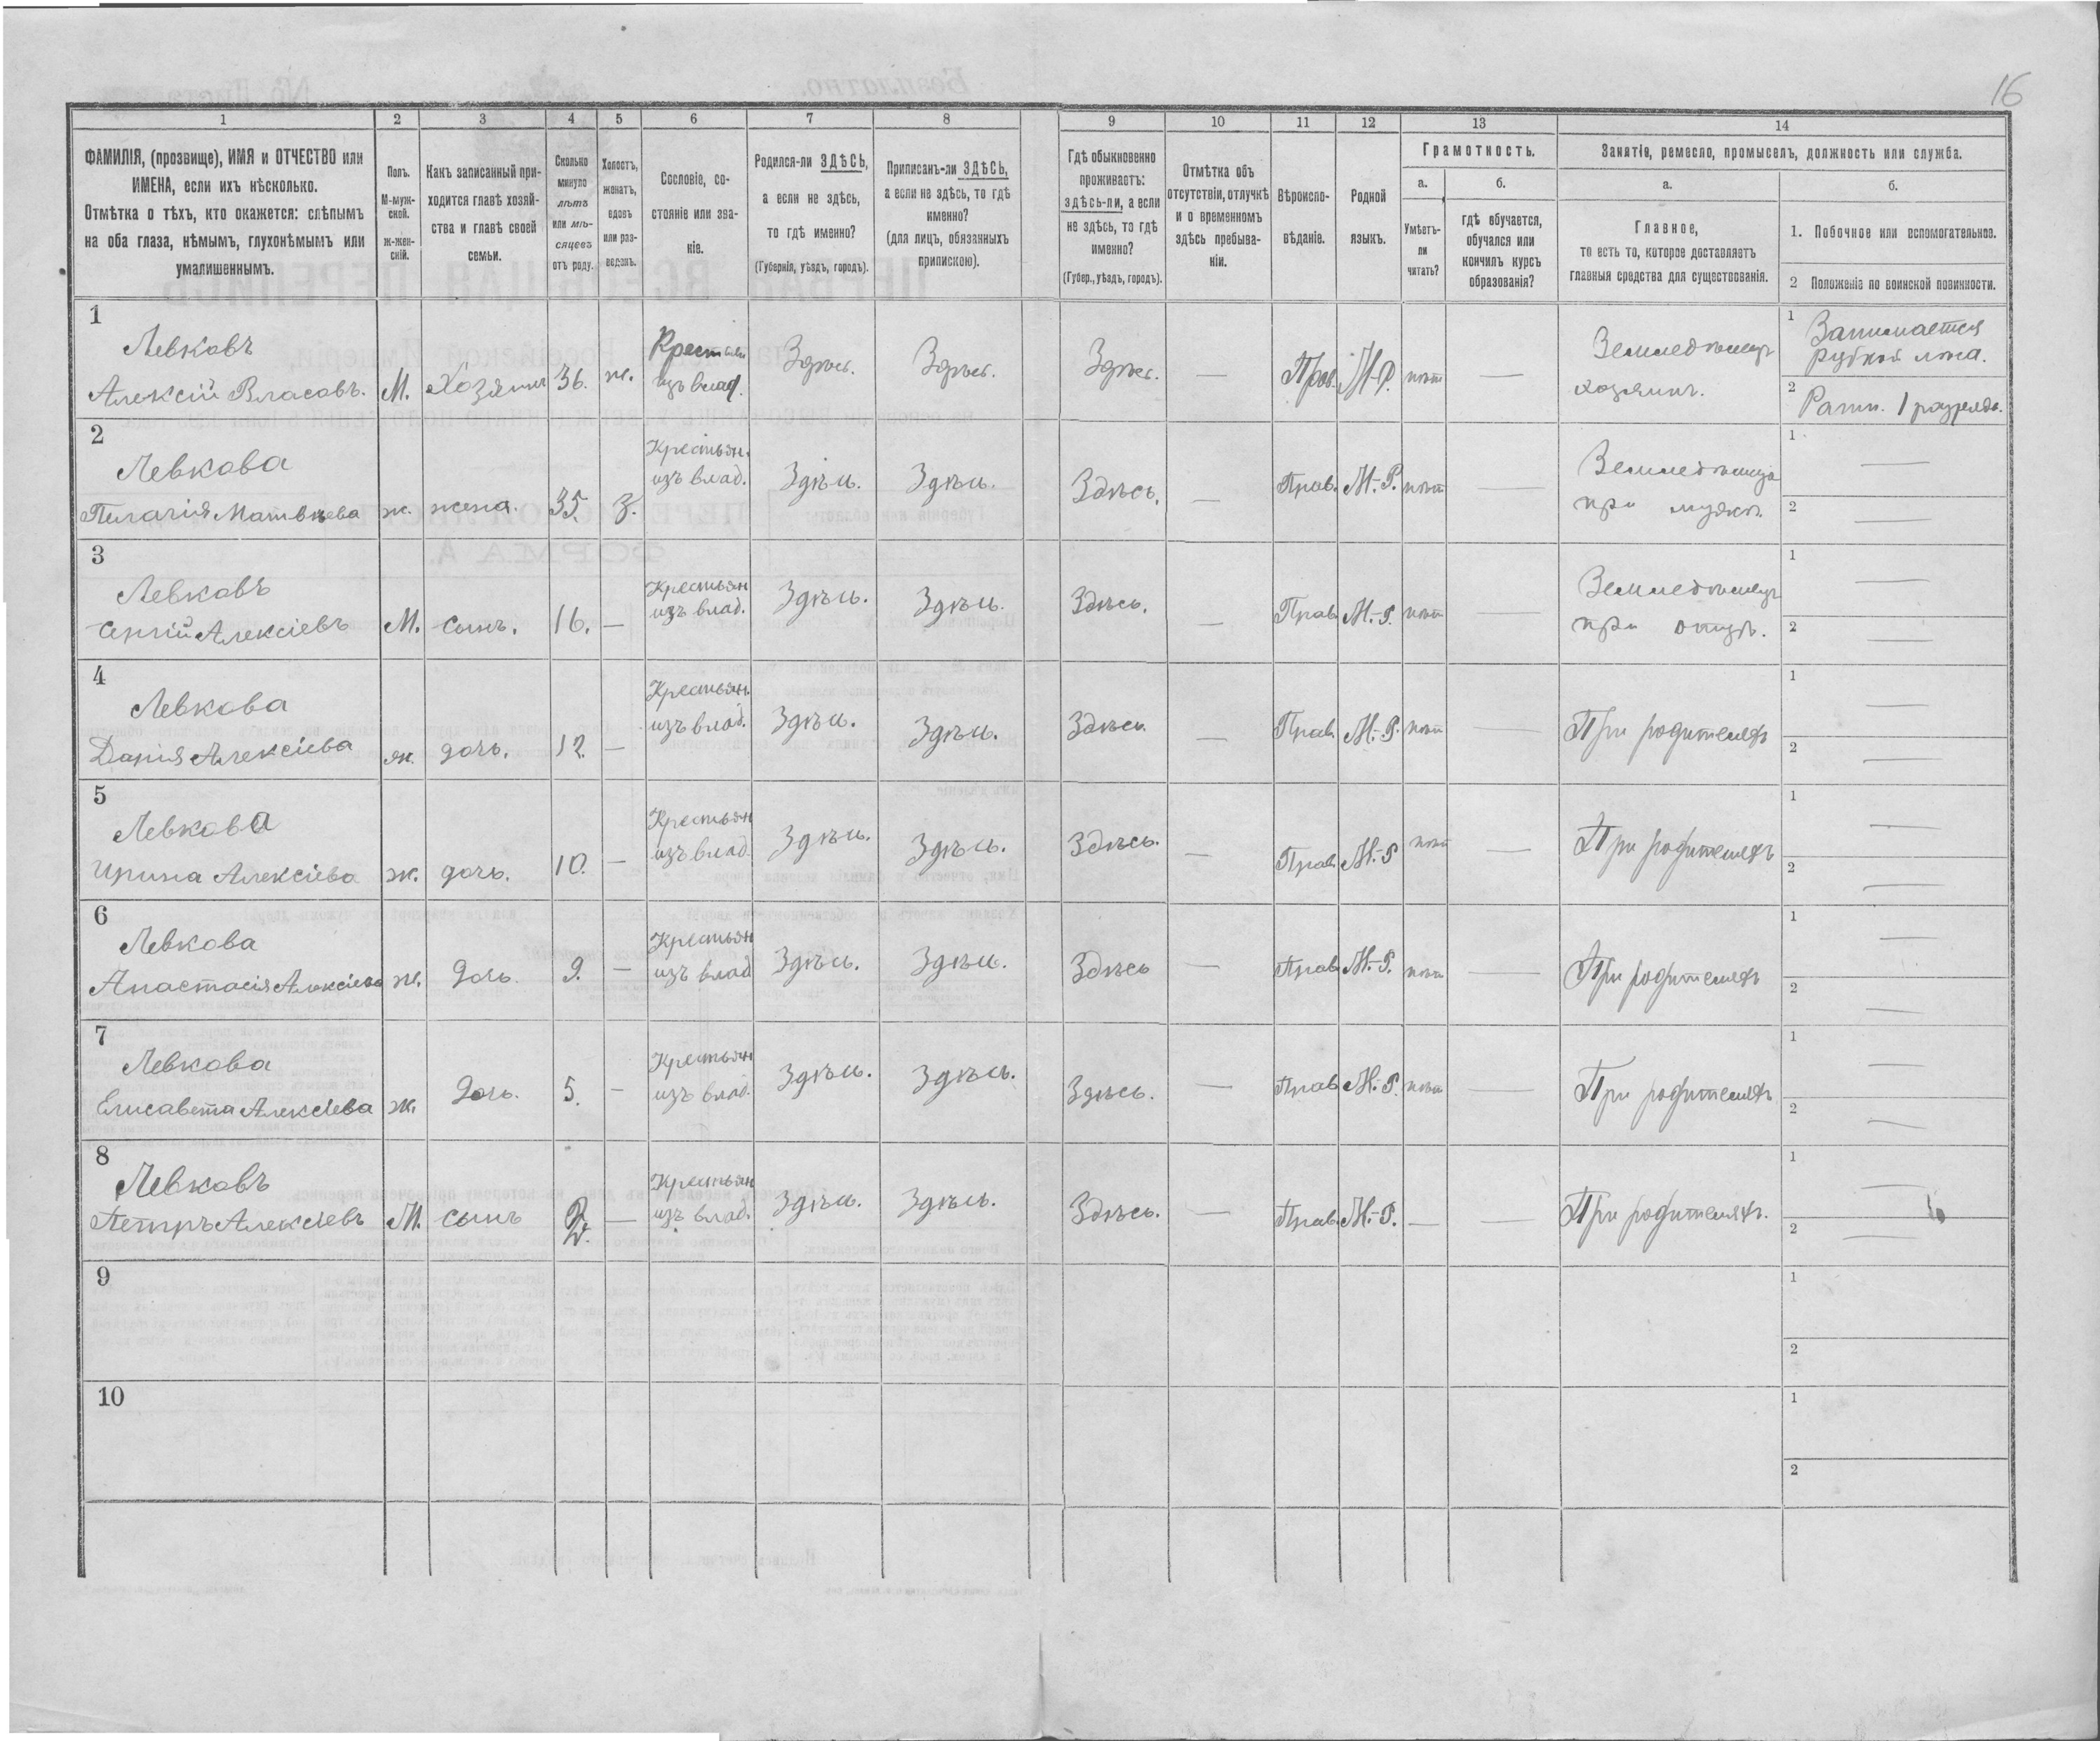 16
1 2 3 4 5 6 7 8 9 10 11 12 13 14
ФАМИЛІЯ, (прозвище), ИМЯ и ОТЧЕСТВО или
ИМЕНА, если ихъ нѣсколько.
Отмѣтка о тѣхъ, кто окажется: слѣпымъ
на оба глаза, нѣмымъ, глухонѣмымъ или
умалишеннымъ.
Полъ.
М-муж-
ской.
ж-жен-
скій.
Какъ записанный при-
ходится главѣ хозяй-
ства и главѣ своей
семьи.
Сколько
минуло
лѣтъ
или мѣ-
сяцевъ
отъ роду.
Холостъ,
женатъ,
вдовъ
или раз-
веденъ.
Сословіе, со-
стояніе или зва-
ніе.
Родился-ли ЗДѢСЬ,
а если не здѣсь,
то гдѣ именно?
(Губернія, уѣздъ, городъ).
Приписанъ-ли ЗДѢСЬ,
а если не здѣсь, то гдѣ
именно?
(для лицъ, обязанныхъ
припискою).
Гдѣ обыкновенно
проживаетъ:
здѣсь-ли, а если
не здѣсь, то гдѣ
именно?
(Губер., уѣздъ, городъ).
Отмѣтка объ
отсутствіи, отлучкѣ
и о временномъ
здѣсь пребыва-
ніи.
Вѣроиспо-
вѣданіе.
Родной
языкъ.
Грамотность.
а.
Умѣетъ-
ли
читать?
б.
гдѣ обучается,
обучался или
кончилъ курсъ
образованія?
Занятіе, ремесло, промыселъ, должность или служба.
а.
Главное,
то есть то, которое доставляетъ
главныя средства для существованія.
б.
1. Побочное или вспомогательное.
2 Положеніе по воинской повинности.
1
Левковъ
Алексій Власовъ. М. Хозяинъ 36. ж. Крестьян изъ влад. Здѣсь. Здѣсь. Здѣсь. — Прав. М-Р. нѣт —
Земледѣлецъ
хозяинъ.
1 Занимается
рубкой лѣса.
2 Ратн. 1 разряда.
2
Левкова
Пелагія Матвѣева ж. жена. 35. з. Крестьян. изъ влад. Здѣсь. Здѣсь. Здѣсь. — Прав. М.-Р. нѣт —
Земледѣлица
при мужѣ.
1 —
2 —
3
Левковъ
Сергій Алексіевъ М. сынъ. 16. — Крестьян изъ влад. Здѣсь. Здѣсь. Здѣсь. — Прав. М.-Р. нѣт —
Земледѣлецъ
при отцѣ.
1 —
2 —
4
Левкова
Дарія Алексіева ж. дочь. 12. — Крестьян. изъ влад. Здѣсь. Здѣсь. Здѣсь. — Прав. М.-Р. нѣт — При родителяхъ
1 —
2 —
5
Левкова
Ирина Алексіева ж. дочь. 10. — Крестьян изъ влад. Здѣсь. Здѣсь. Здѣсь. — Прав. М.-Р нѣт — При родителяхъ
1 —
2 —
6
Левкова
Анастасія Алексіева ж. дочь. 9. — Крестьян изъ влад Здѣсь. Здѣсь. Здѣсь — Прав. М.-Р. нѣт — При родителяхъ
1 —
2 —
7
Левкова
Елисавета Алексіева ж. дочь. 5. — Крестьян изъ влад. Здѣсь. Здѣсь. Здѣсь. — Прав. М.-Р. нѣт — При родителяхъ
1 —
2 —
8
Левковъ
Петръ Алексіевъ М. сынъ 2. — Крестьян изъ влад. Здѣсь. Здѣсь. Здѣсь. — Прав. М.-Р. — — При родителяхъ.
1 —
2 —
9
1
2
10
1
2